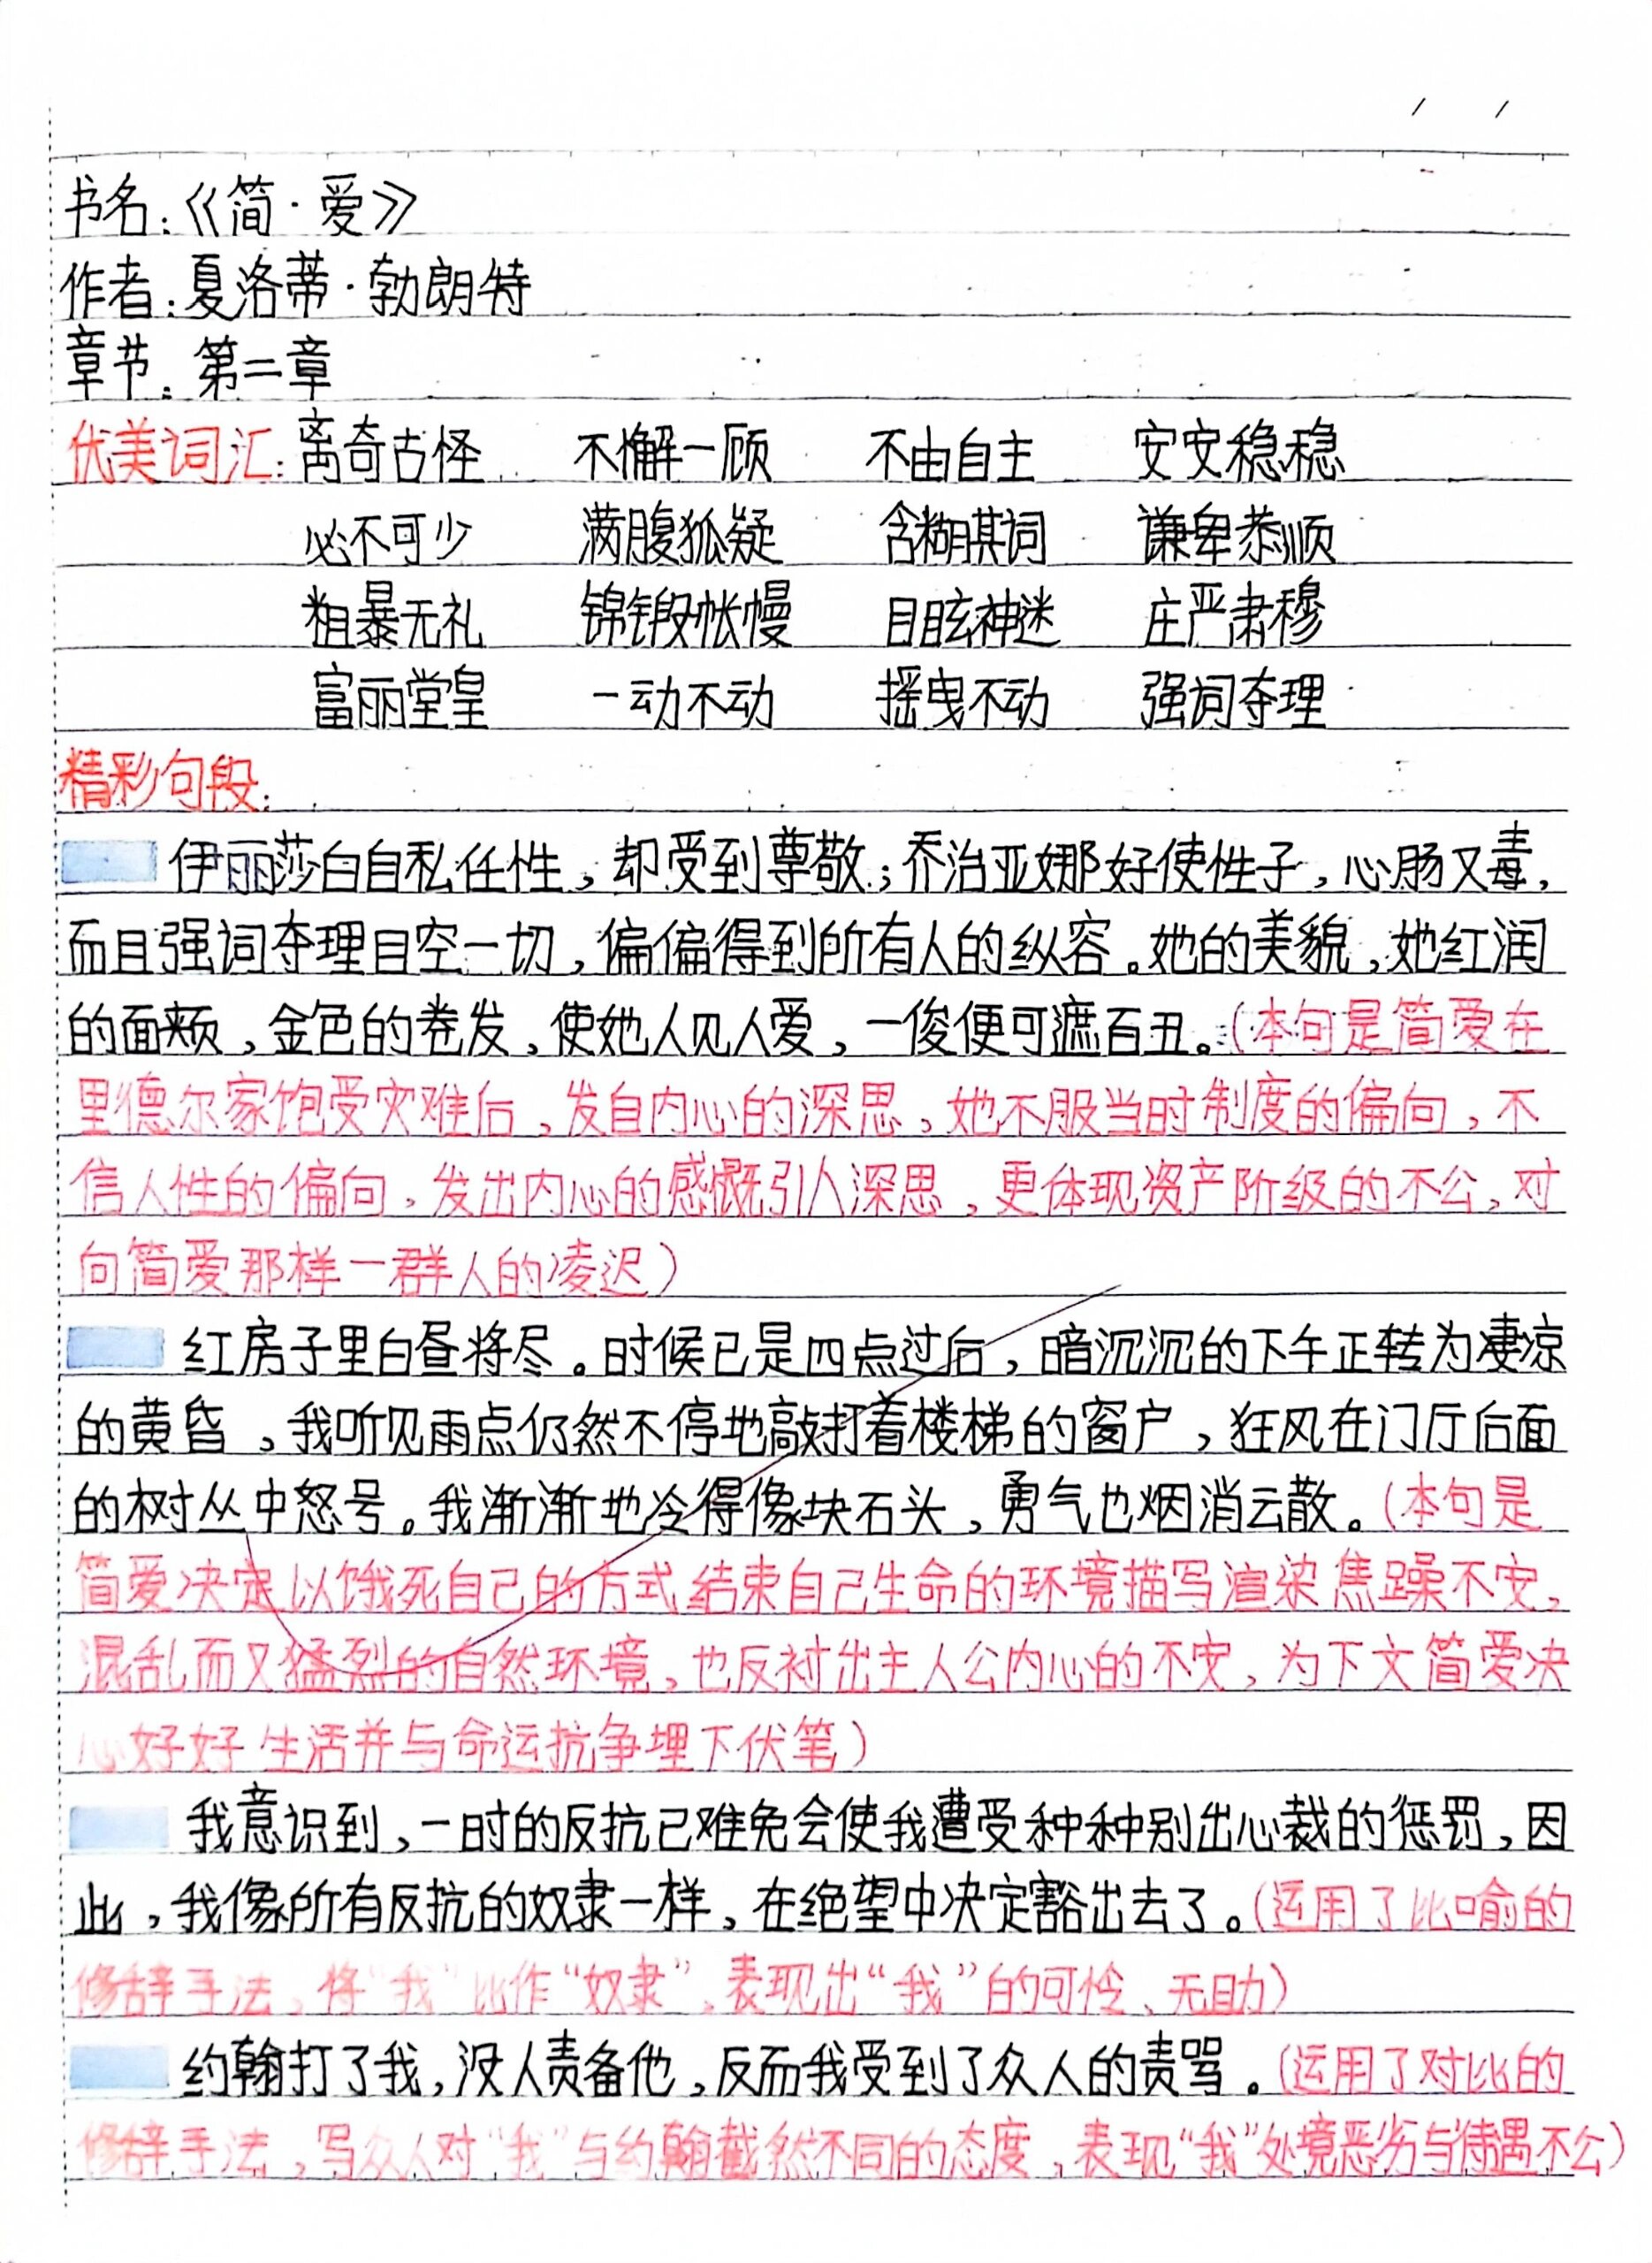 书名:《简·爱》
作者:夏洛蒂·勃朗特
章节:第二章
优美词汇:离奇古怪 不懈一顾 不由自主 安安稳稳
必不可少 满腹狐疑 含糊其词 谦卑恭顺
粗暴无礼 锦锻帐幔 目眩神迷 庄严肃穆
富丽堂皇 一动不动 摇曳不动 强词夺理
精彩句段:
伊丽莎白自私任性,却受到尊敬;乔治亚娜好使性子,心肠又毒,
而且强词夺理目空一切,偏偏得到所有人的纵容。她的美貌,她红润
的面颊,金色的卷发,使她人见人爱,一俊便可遮百丑。(本句是简爱在
里德尔家饱受灾难后,发自内心的深思,她不服当时制度的偏向,不
信人性的偏向,发出内心的感慨引人深思,更体现资产阶级的不公,对
向简爱那样一群人的凌迟)
红房子里白昼将尽。时候已是四点过后,暗沉沉的下午正转为凄凉
的黄昏,我听见雨点仍然不停地敲打着楼梯的窗户,狂风在门厅后面
的树丛中怒号。我渐渐地冷得像块石头,勇气也烟消云散。(本句是
简爱决定以饿死自己的方式结束自己生命的环境描写渲染焦躁不安,
混乱而又猛烈的自然环境,也反衬出主人公内心的不安,为下文简爱决
心好好生活并与命运抗争埋下伏笔)
我意识到,一时的反抗已难免会使我遭受种种别出心裁的惩罚,因
此,我像所有反抗的奴隶一样,在绝望中决定豁出去了。(运用了比喻的
修辞手法,将“我”比作“奴隶”,表现出“我”的可怜、无助)
约翰打了我,没人责备他,反而我受到了众人的责骂。(运用了对比的
修辞手法,写众人对“我”与约翰截然不同的态度,表现“我”处境恶劣与待遇不公)